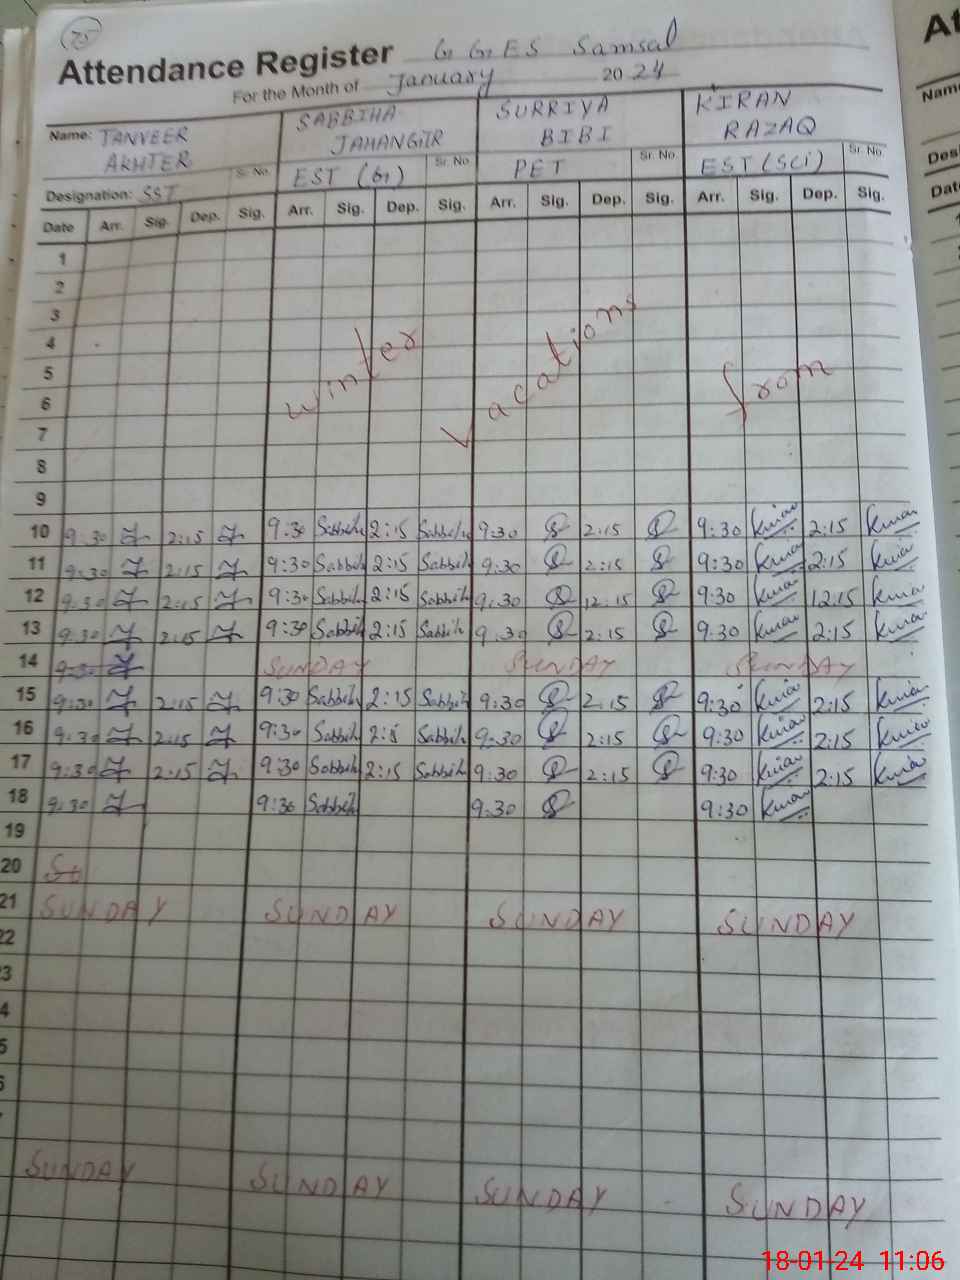 75
Attendance Register G. G. ES Samsal
For the Month of January 2024
Name: TANVEER AKHTER SABBIHA JAHANGIR SURRIYA BIBI KIRAN RAZAQ
Sr. No. Sr. No. Sr. No. Sr. No.
Designation: SST EST (G) PET EST (SCI)
Date Arr. Sig. Dep. Sig. Arr. Sig. Dep. Sig. Arr. Sig. Dep. Sig. Arr. Sig. Dep. Sig.
1
2
3
4
5
6
7
8
9
winter vacations from
10 9:30 2:15 9:30 Sabbih 2:15 Sabbih 9:30 2:15 9:30 Kiran 2:15 Kiran
11 9:30 2:15 9:30 Sabbih 2:15 Sabbih 9:30 2:15 9:30 Kiran 2:15 Kiran
12 9:30 2:15 9:30 Sabbih 2:15 Sabbih 9:30 12:15 9:30 Kiran 12:15 Kiran
13 9:30 2:15 9:30 Sabbih 2:15 Sabbih 9:30 2:15 9:30 Kiran 2:15 Kiran
14 9:30 SUNDAY SUNDAY SUNDAY
15 9:30 2:15 9:30 Sabbih 2:15 Sabbih 9:30 2:15 9:30 Kiran 2:15 Kiran
16 9:30 2:15 9:30 Sabbih Sabbih 9:30 2:15 9:30 Kiran 2:15 Kiran
17 9:30 2:15 9:30 Sabbih 2:15 Sabbih 9:30 2:15 9:30 Kiran 2:15 Kiran
18 9:30 9:30 Sabbih 9:30 9:30 Kiran
19
20
21 SUNDAY SUNDAY SUNDAY SUNDAY
22
3
4
5
SUNDAY SUNDAY SUNDAY SUNDAY
At
Name
Desi
Date
18-01-24 11:06